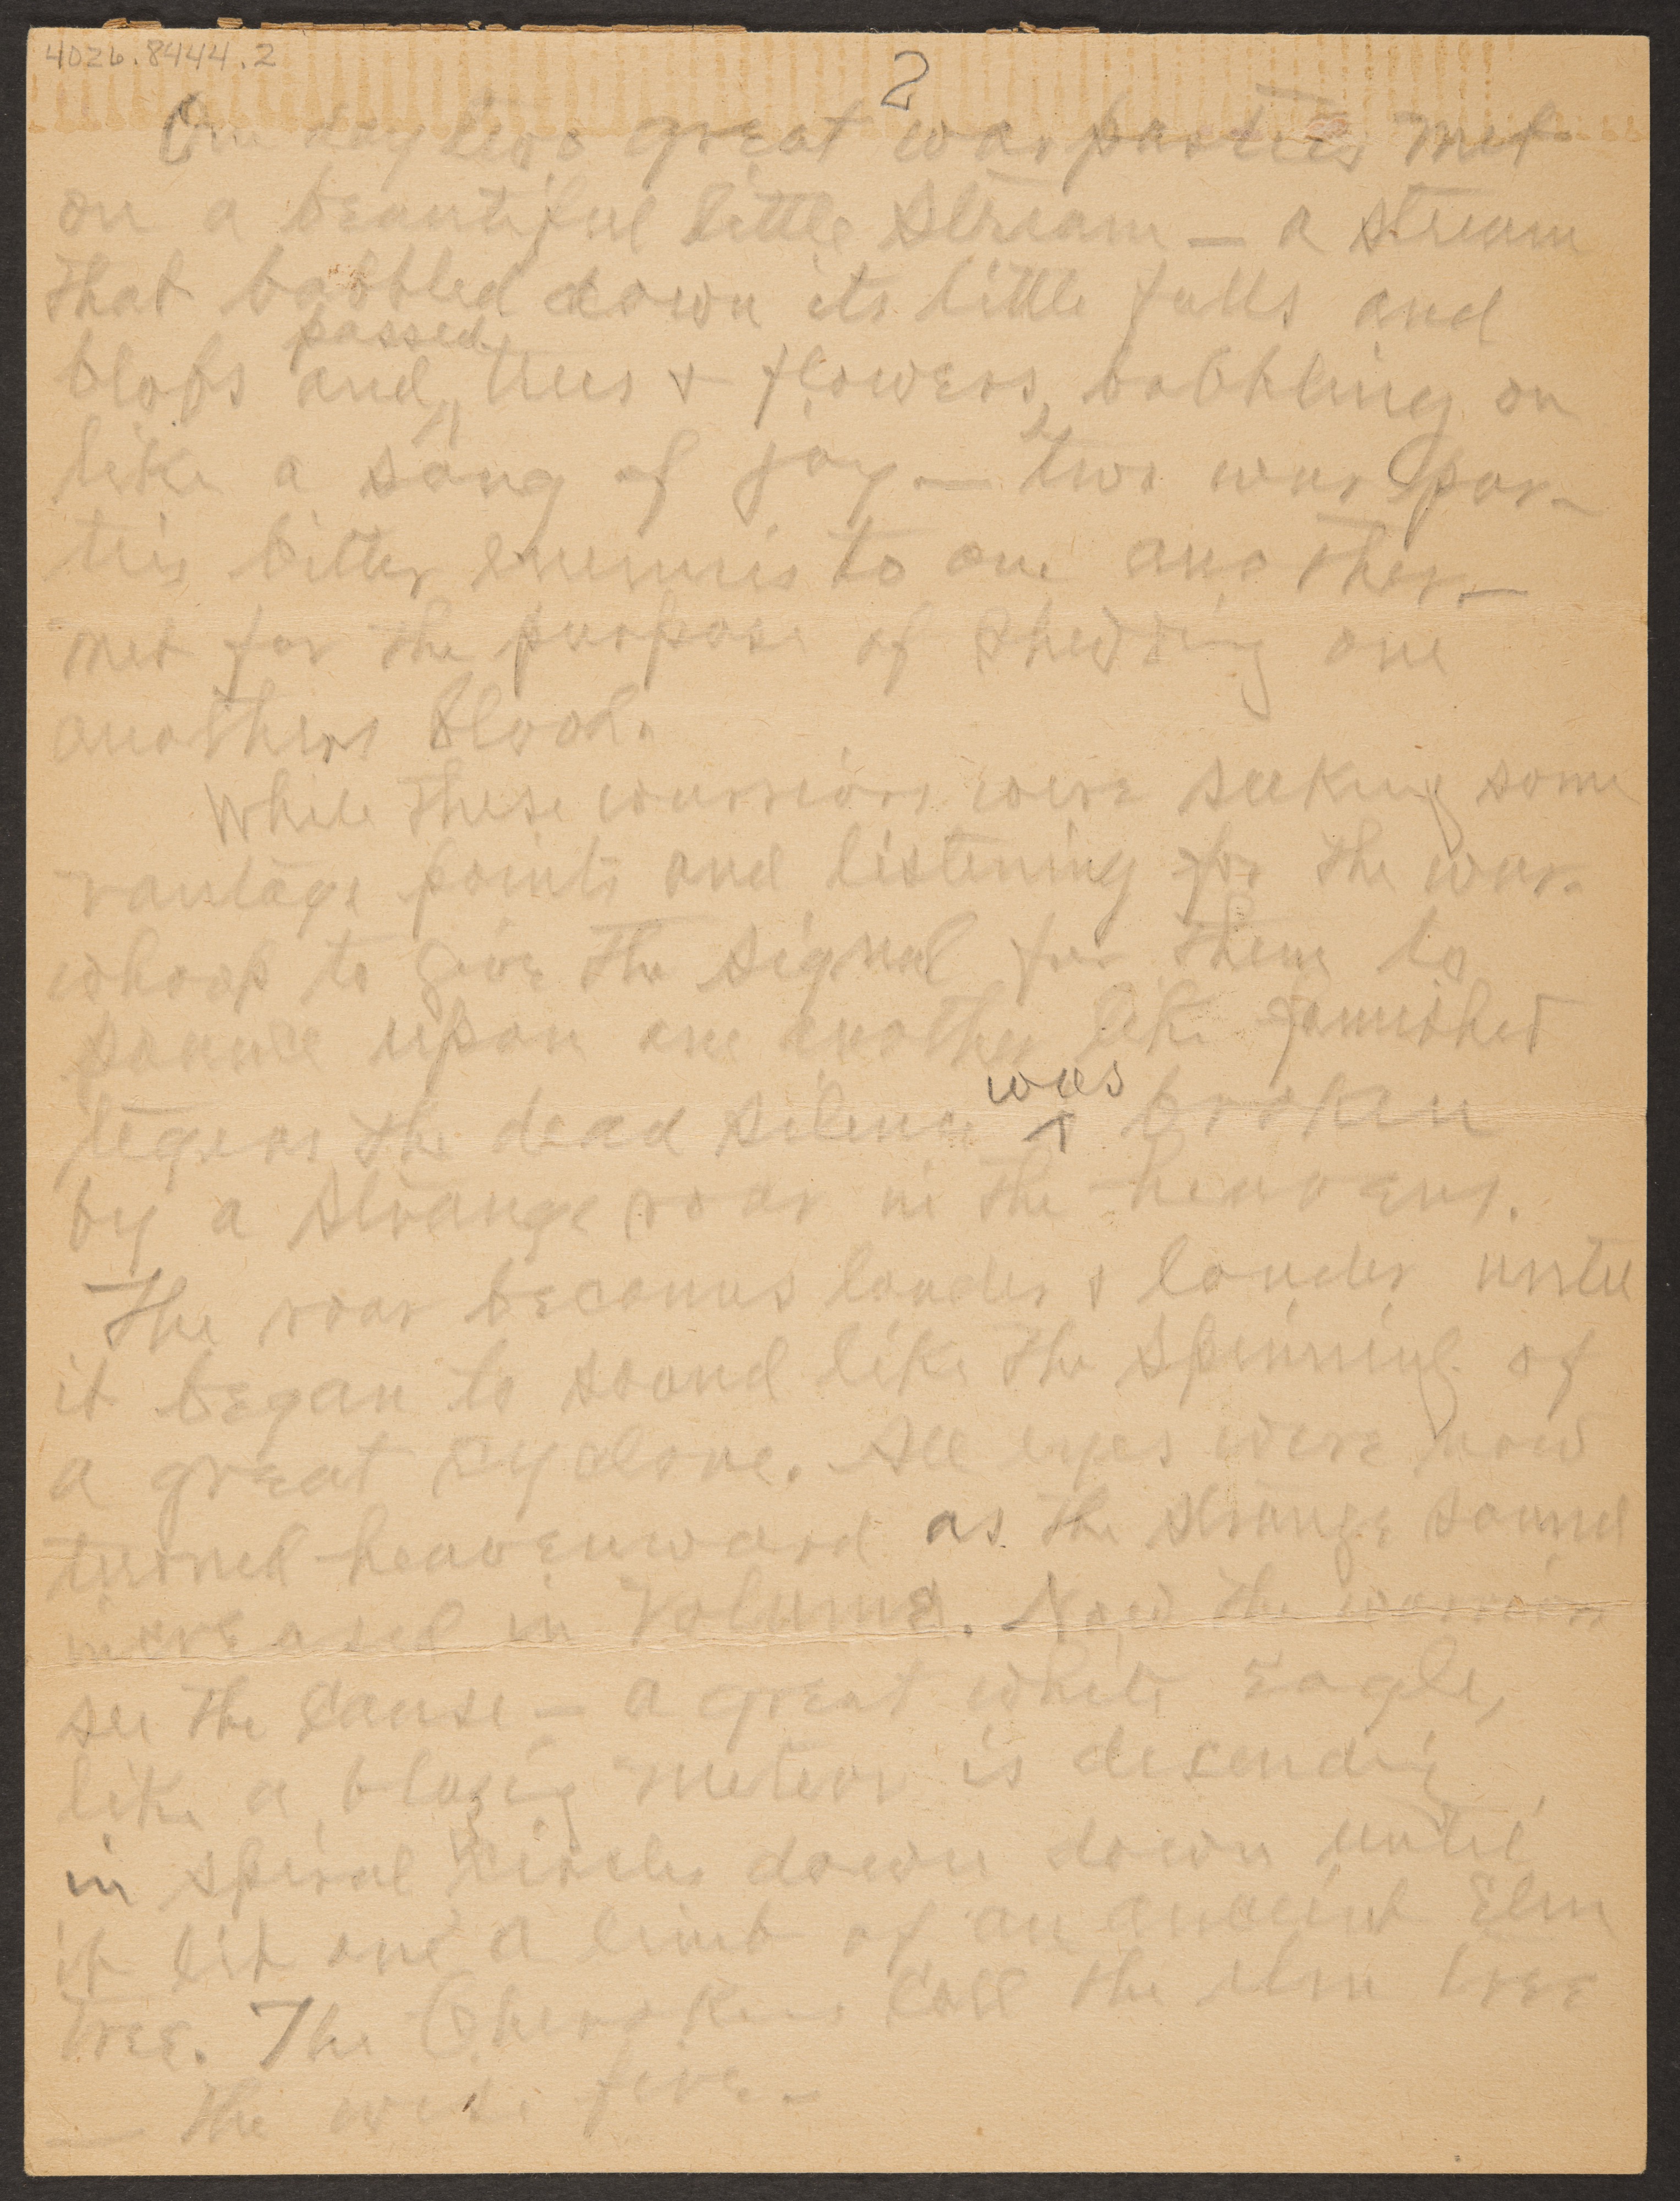 4026.8444.2
2
One day two great war parties met
on a beautiful little stream — a stream
that babbled down its little falls and
passed
blops and trees & flowers, babbling on
like a song of joy — two war par-
tis bitter enemies to one another —
met for the purpose of shedding one
anothers blood.
While these warriors were seeking some
vantage points and listening for the war-
whoop to give the signal for them to
pounce upon one another like famished
was
tegers the dead silence ^ broken
by a strange roar in the heavens.
The roar becomes louder & louder until
it began to sound like the spinning of
a great cyclone. All eyes were now
turned heavenward as the strange sound
increased in volume. Now the warriors
see the cause — a great white Eagle,
like a blazing meteor is descending
in spiral circles down down until
it lit one a limb of an ancient Elm
tree. The Cherokees call the elm tree
— the fire —